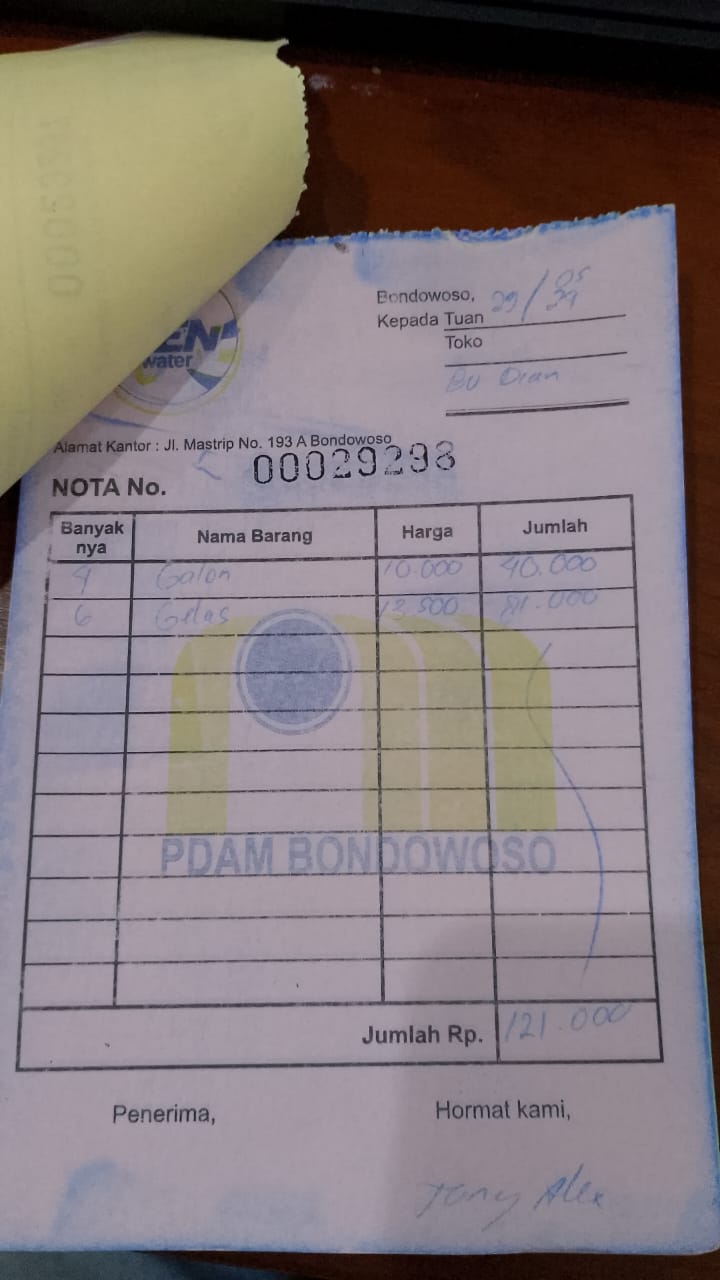 EN
water
Bondowoso, 29/05
24
Kepada Tuan
Toko
Bu Dian
Alamat Kantor : Jl. Mastrip No. 193 A Bondowoso
NOTA No. 00029298
Banyak nya Nama Barang Harga Jumlah
4 Galon 10.000 40.000
6 Gelas 13.500 81.000
PDAM BONDOWOSO
Jumlah Rp. 121.000
Penerima, Hormat kami,
Tony Alex